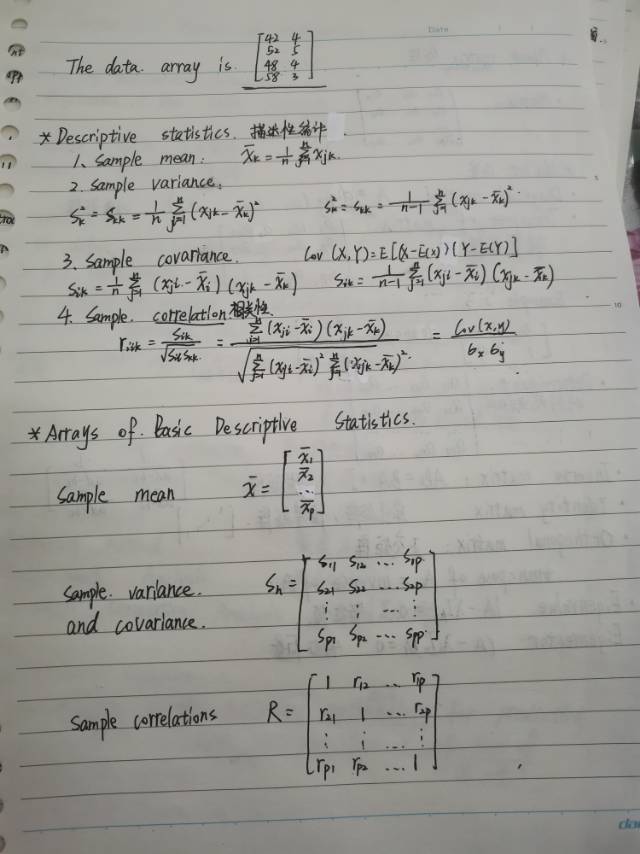 The data array is [42 4
52 5
48 4
58 3]
* Descriptive statistics. 描述性统计
1. Sample mean: x̄k = 1/n Σ(j=1→n) xjk.
2. Sample variance.
sk² = skk = 1/n Σ(j=1→n) (xjk - x̄k)²  sk² = skk = 1/(n-1) Σ(j=1→n) (xjk - x̄k)²
3. Sample covariance. Cov (X,Y)=E[(X-E(x))(Y-E(Y)]
sik = 1/n Σ(j=1→n) (xji - x̄i)(xjk - x̄k)  sik = 1/(n-1) Σ(j=1→n) (xji - x̄i)(xjk - x̄k)
4. Sample. correlation 相关性.
rik = sik/√(sii skk) = Σ(j=1→n) (xji - x̄i)(xjk - x̄k) / √(Σ(j=1→n) (xji - x̄i)² Σ(j=1→n) (xjk - x̄k)²) = Cov(x,y)/(6x 6y)
* Arrays of Basic Descriptive Statistics.
Sample mean x̄ = [x̄1
x̄2
...
x̄p]
Sample variance.
and covariance. Sn = [s11 s12 ... s1p
s21 s22 ... s2p
⋮ ⋮ ... ⋮
sp1 sp2 ... spp]
Sample correlations R = [1 r12 ... r1p
r21 1 ... r2p
⋮ ⋮ ... ⋮
rp1 rp2 ... 1]